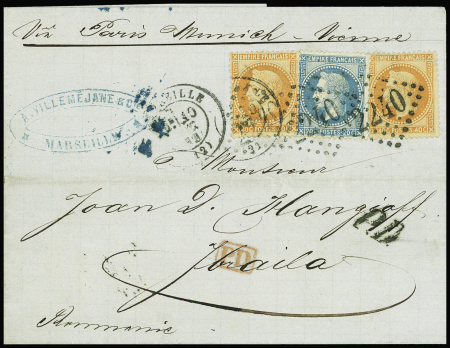 Via Paris Munich - Vienne
A. VILLEMEJANE & C
MARSEILLE
MARSEILLE
EMPIRE FRANÇAIS
EMPIRE FRANÇAIS
EMPIRE FRANÇAIS
2240
à Monsieur
Joan D. Hangioff
PD
PD
Ibraila
Roumanie